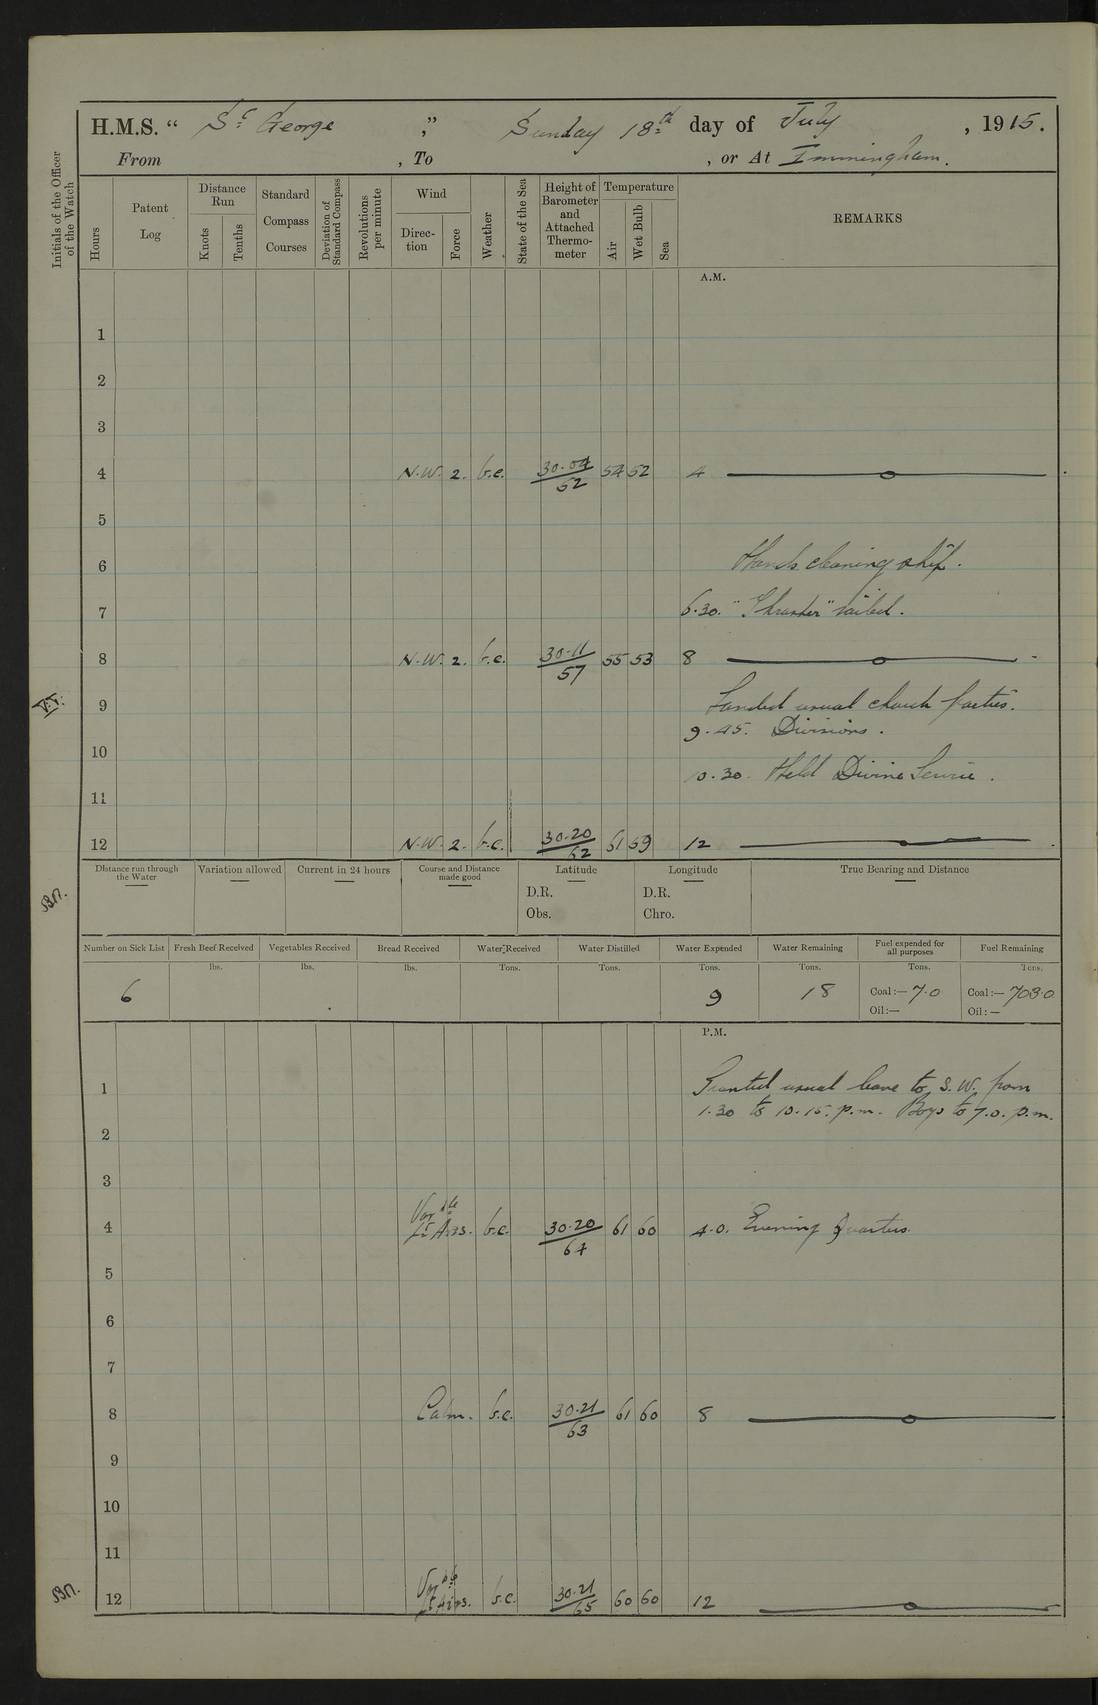 H.M.S. “ St George ,” Sunday 18th day of July , 1915.
From , To , or At Immingham.
Initials of the Officer of the Watch
Hours
Patent Log
Distance Run
Knots
Tenths
Standard Compass Courses
Deviation of Standard Compass
Revolutions per minute
Wind
Direc-tion
Force
Weather
State of the Sea
Height of Barometer and Attached Thermo-meter
Temperature
Air
Wet Bulb
Sea
REMARKS
A.M.
1
2
3
4 N.W. 2. b.c. 30.04/52 54 52 4
5
6 Hands cleaning ship.
7 6.30. " Thruster" sailed.
8 N.W. 2. b.c. 30.11/57 55 53 8
9 Landed usual church parties.
9.45. Divisions.
10
10.30. Held Divine Service.
11
12 N.W. 2. b.c. 30.20/62 61 59 12
Distance run through the Water
Variation allowed
Current in 24 hours
Course and Distance made good
Latitude
Longitude
True Bearing and Distance
D.R. D.R.
Obs. Chro.
Number on Sick List
Fresh Beef Received
Vegetables Received
Bread Received
Water Received
Water Distilled
Water Expended
Water Remaining
Fuel expended for all purposes
Fuel Remaining
lbs. lbs. lbs. Tons. Tons. Tons. Tons. Tons. Tons.
6 9 18 Coal:— 7.0 Coal:— 703.0
Oil:— Oil:—
P.M.
1 Granted usual leave to S.W. from
1.30 to 10.15. p.m. Boys to 7.0. p.m.
2
3
4 Varble Lt Airs. b.c. 30.20/64 61 60 4.0. Evening Quarters.
5
6
7
8 Calm. b.c. 30.21/63 61 60 8
9
10
11
12 Varble Lt Airs. b.c. 30.21/65 60 60 12